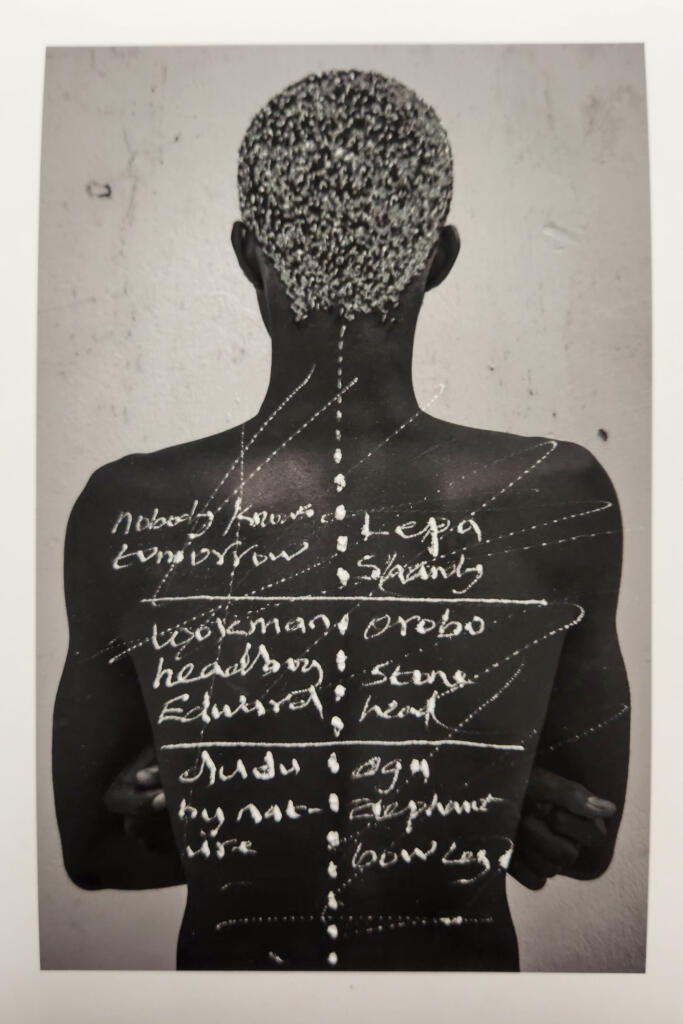 nobody knows
tomorrow
Lepa
Shandy
Lookman
headboy
Edward
orobo
stone
head
dudu
by nat-
ure
agu
Elephant
bow Leg